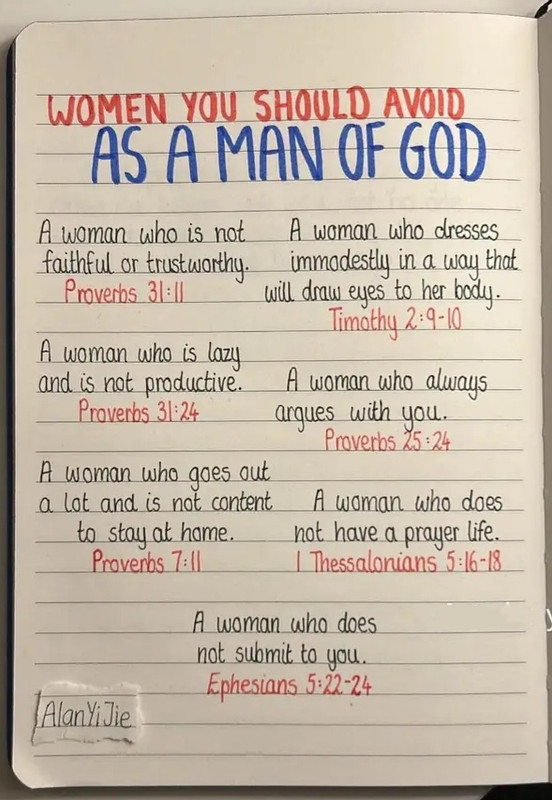 WOMEN YOU SHOULD AVOID
AS A MAN OF GOD
A woman who is not
faithful or trustworthy.
Proverbs 31:11
A woman who is lazy
and is not productive.
Proverbs 31:24
A woman who goes out
a lot and is not content
to stay at home.
Proverbs 7:11
A woman who dresses
immodestly in a way that
will draw eyes to her body.
Timothy 2:9-10
A woman who always
argues with you.
Proverbs 25:24
A woman who does
not have a prayer life.
1 Thessalonians 5:16-18
A woman who does
not submit to you.
Ephesians 5:22-24
AlanYiJie